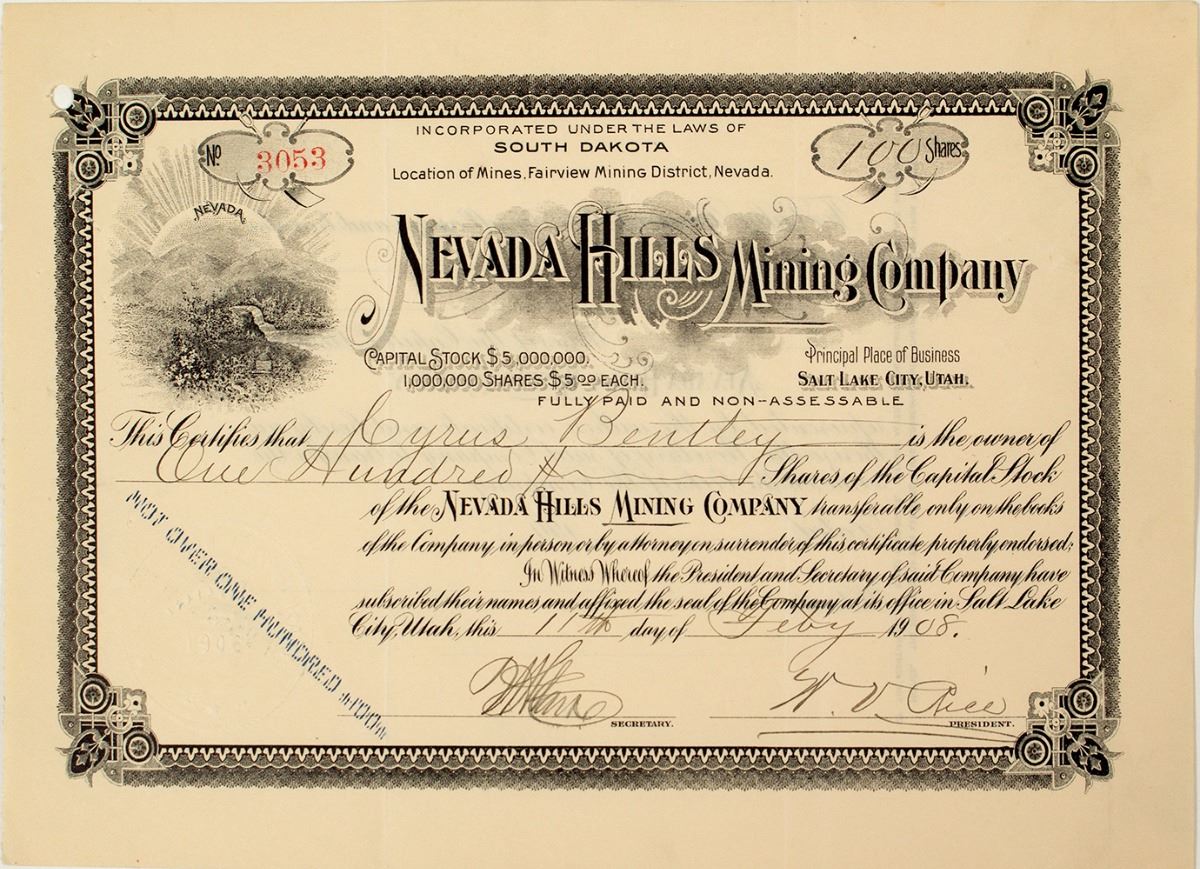 INCORPORATED UNDER THE LAWS OF
SOUTH DAKOTA
Location of Mines, Fairview Mining District, Nevada.
No 3053
100 Shares
NEVADA
NEVADA HILLS Mining Company
CAPITAL STOCK $5,000,000.
1,000,000 SHARES $5.00 EACH.
Principal Place of Business
SALT LAKE CITY, UTAH.
FULLY PAID AND NON-ASSESSABLE
This Certifies that Cyrus Bentley is the owner of
One Hundred Shares of the Capital Stock
of the NEVADA HILLS MINING COMPANY transferable only on the books
of the Company in person or by attorney on surrender of this certificate properly endorsed;
In Witness Whereof the President and Secretary of said Company have
subscribed their names and affixed the seal of the Company at its office in Salt Lake
City, Utah, this 11th day of Feby 1908.
NOT OVER ONE HUNDRED $100$
SECRETARY.
W. V. Rice
PRESIDENT.